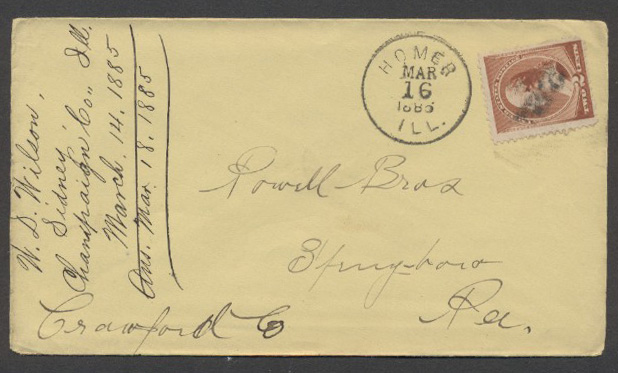 W. D. Wilson,
Sidney,
Champaign Co., Ill.
March. 14. 1885
Ans. Mar. 18. 1885
HOMER
MAR
16
1885
ILL.
TWO CENTS
Powell Bros
Spring-boro
Crawford Co
Pa.